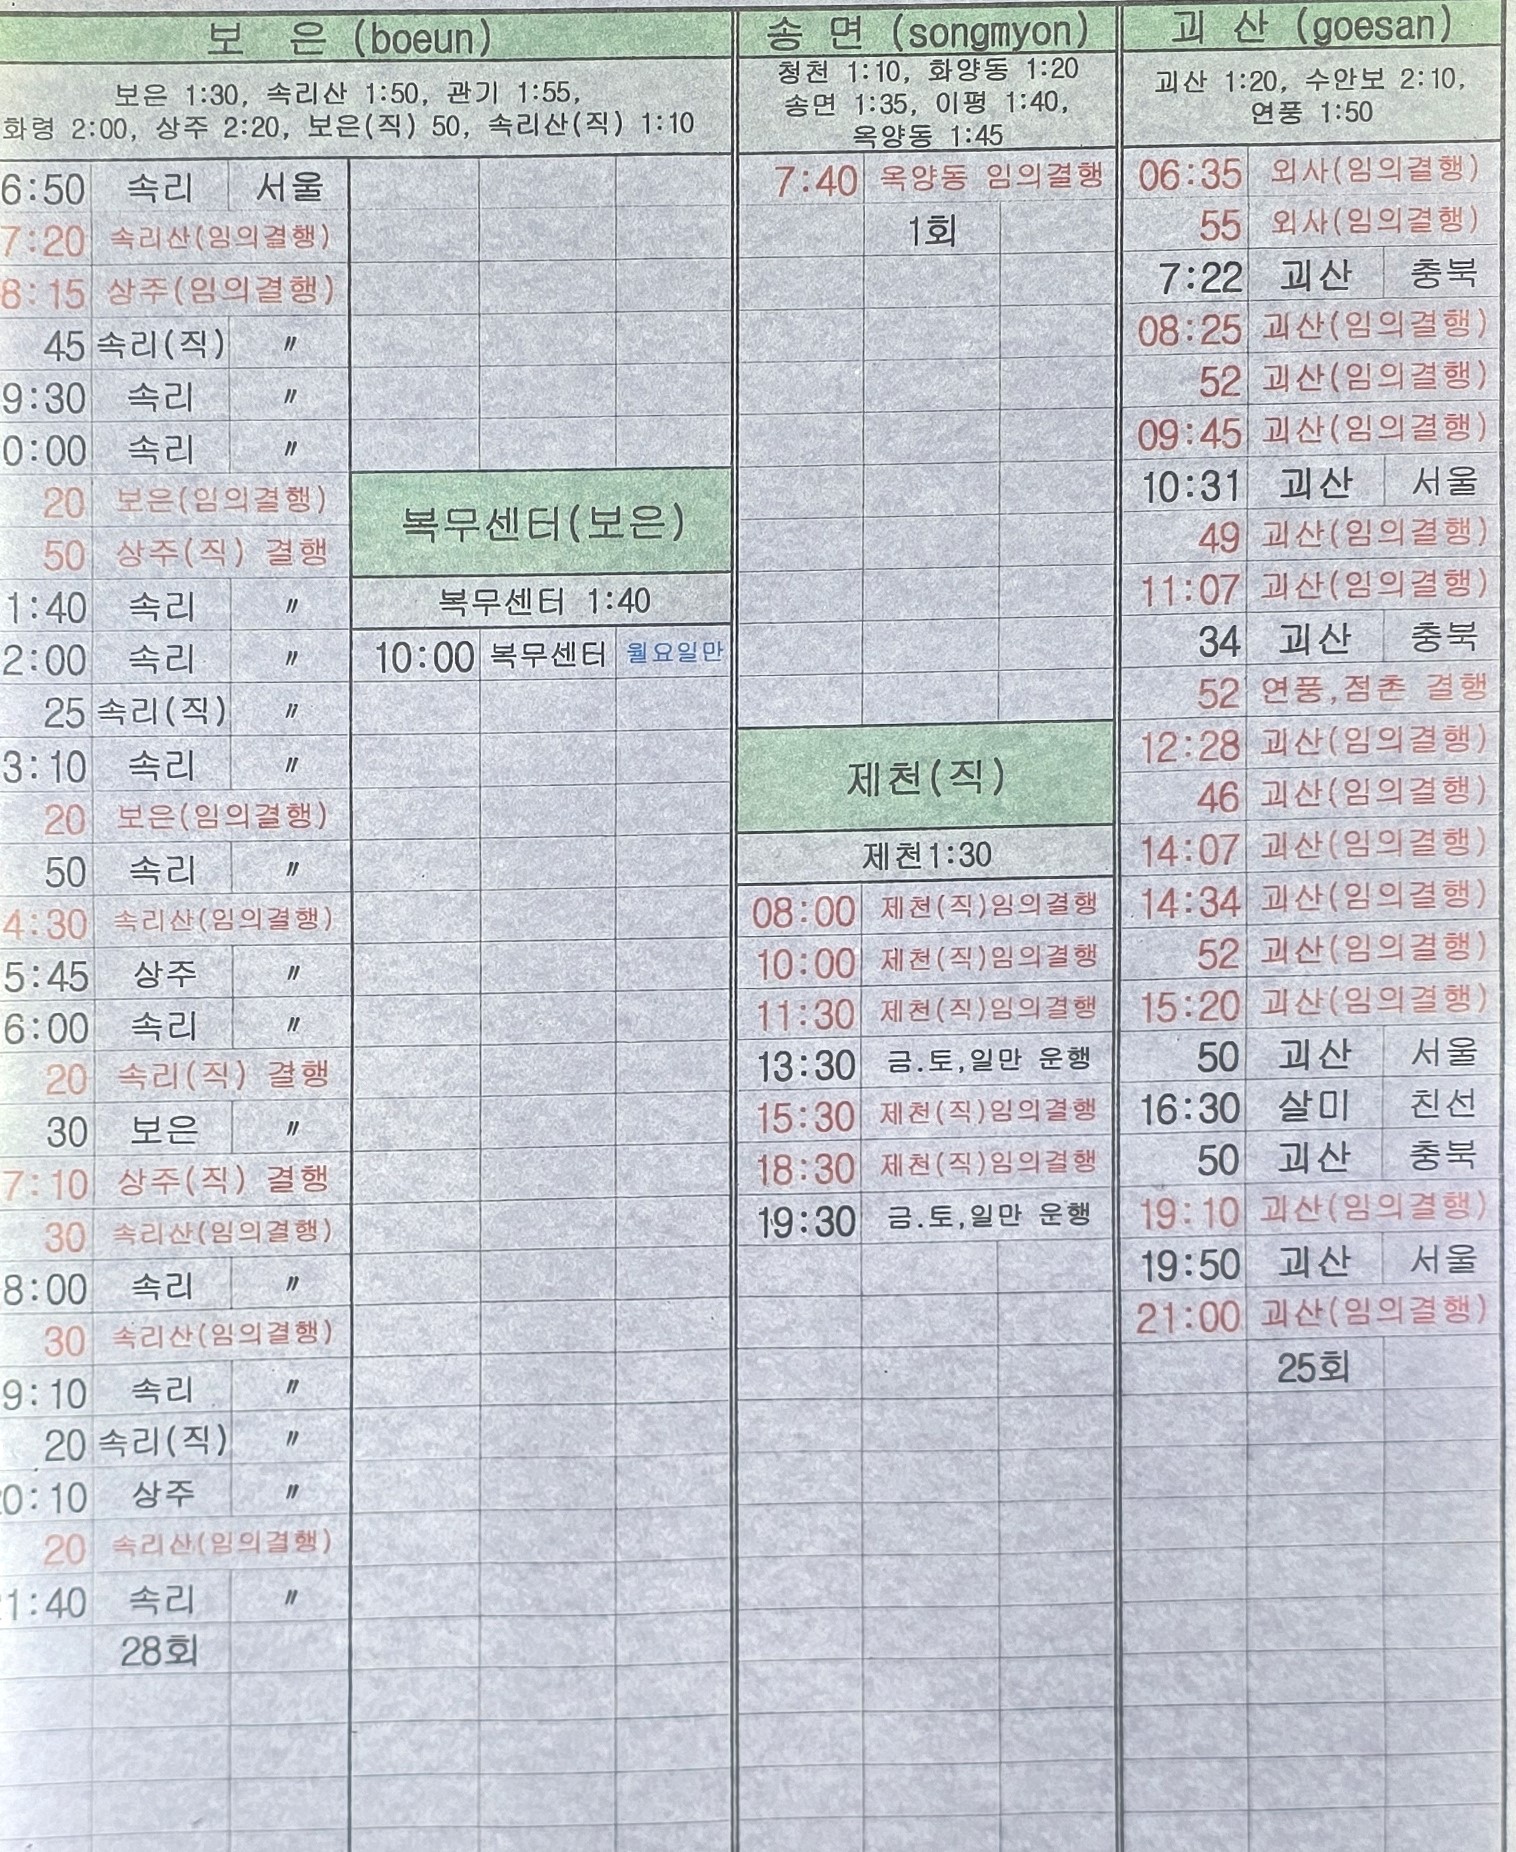 보 은 (boeun)
보은 1:30, 속리산 1:50, 관기 1:55,
화령 2:00, 상주 2:20, 보은(직) 50, 속리산(직) 1:10
6:50 속리 서울
7:20 속리산(임의결행)
8:15 상주(임의결행)
45 속리(직) 〃
9:30 속리 〃
0:00 속리 〃
20 보은(임의결행)
50 상주(직) 결행
1:40 속리 〃
2:00 속리 〃
25 속리(직) 〃
3:10 속리 〃
20 보은(임의결행)
50 속리 〃
4:30 속리산(임의결행)
5:45 상주 〃
6:00 속리 〃
20 속리(직) 결행
30 보은 〃
7:10 상주(직) 결행
30 속리산(임의결행)
8:00 속리 〃
30 속리산(임의결행)
9:10 속리 〃
20 속리(직) 〃
0:10 상주 〃
20 속리산(임의결행)
1:40 속리 〃
28회
복무센터(보은)
복무센터 1:40
10:00 복무센터 월요일만
송 면 (songmyon)
청천 1:10, 화양동 1:20
송면 1:35, 이평 1:40,
옥양동 1:45
7:40 옥양동 임의결행
1회
제천(직)
제천1:30
08:00 제천(직)임의결행
10:00 제천(직)임의결행
11:30 제천(직)임의결행
13:30 금.토,일만 운행
15:30 제천(직)임의결행
18:30 제천(직)임의결행
19:30 금.토,일만 운행
괴 산 (goesan)
괴산 1:20, 수안보 2:10,
연풍 1:50
06:35 외사(임의결행)
55 외사(임의결행)
7:22 괴산 충북
08:25 괴산(임의결행)
52 괴산(임의결행)
09:45 괴산(임의결행)
10:31 괴산 서울
49 괴산(임의결행)
11:07 괴산(임의결행)
34 괴산 충북
52 연풍,점촌 결행
12:28 괴산(임의결행)
46 괴산(임의결행)
14:07 괴산(임의결행)
14:34 괴산(임의결행)
52 괴산(임의결행)
15:20 괴산(임의결행)
50 괴산 서울
16:30 살미 친선
50 괴산 충북
19:10 괴산(임의결행)
19:50 괴산 서울
21:00 괴산(임의결행)
25회